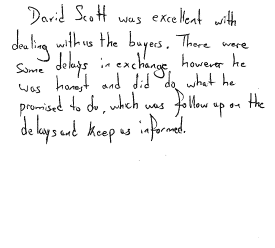 David Scott was excellent with
dealing with us the buyers. There were
some delays in exchange however he
was honest and did do what he
promised to do, which was follow up on the
delays and keep us informed.